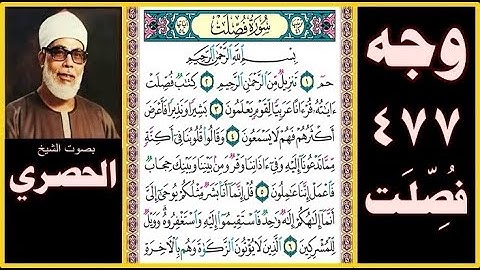 وجه
٤٧٧
فُصِّلَت
بصوت الشيخ
الحصري
سُورَةُ فُصِّلَتْ
بِسْمِ اللَّهِ الرَّحْمَٰنِ الرَّحِيمِ
حمٓ ١ تَنزِيلٌ مِّنَ الرَّحْمَٰنِ الرَّحِيمِ ٢ كِتَابٌ فُصِّلَتْ
آيَاتُهُ قُرْآنًا عَرَبِيًّا لِّقَوْمٍ يَعْلَمُونَ ٣ بَشِيرًا وَنَذِيرًا فَأَعْرَضَ
أَكْثَرُهُمْ فَهُمْ لَا يَسْمَعُونَ ٤ وَقَالُوا قُلُوبُنَا فِي أَكِنَّةٍ
مِّمَّا تَدْعُونَا إِلَيْهِ وَفِي آذَانِنَا وَقْرٌ وَمِن بَيْنِنَا وَبَيْنِكَ حِجَابٌ
فَاعْمَلْ إِنَّنَا عَامِلُونَ ٥ قُلْ إِنَّمَا أَنَا بَشَرٌ مِّثْلُكُمْ يُوحَىٰ إِلَيَّ
أَنَّمَا إِلَٰهُكُمْ إِلَٰهٌ وَاحِدٌ فَاسْتَقِيمُوا إِلَيْهِ وَاسْتَغْفِرُوهُ وَوَيْلٌ
لِّلْمُشْرِكِينَ ٦ الَّذِينَ لَا يُؤْتُونَ الزَّكَاةَ وَهُم بِالْآخِرَةِ